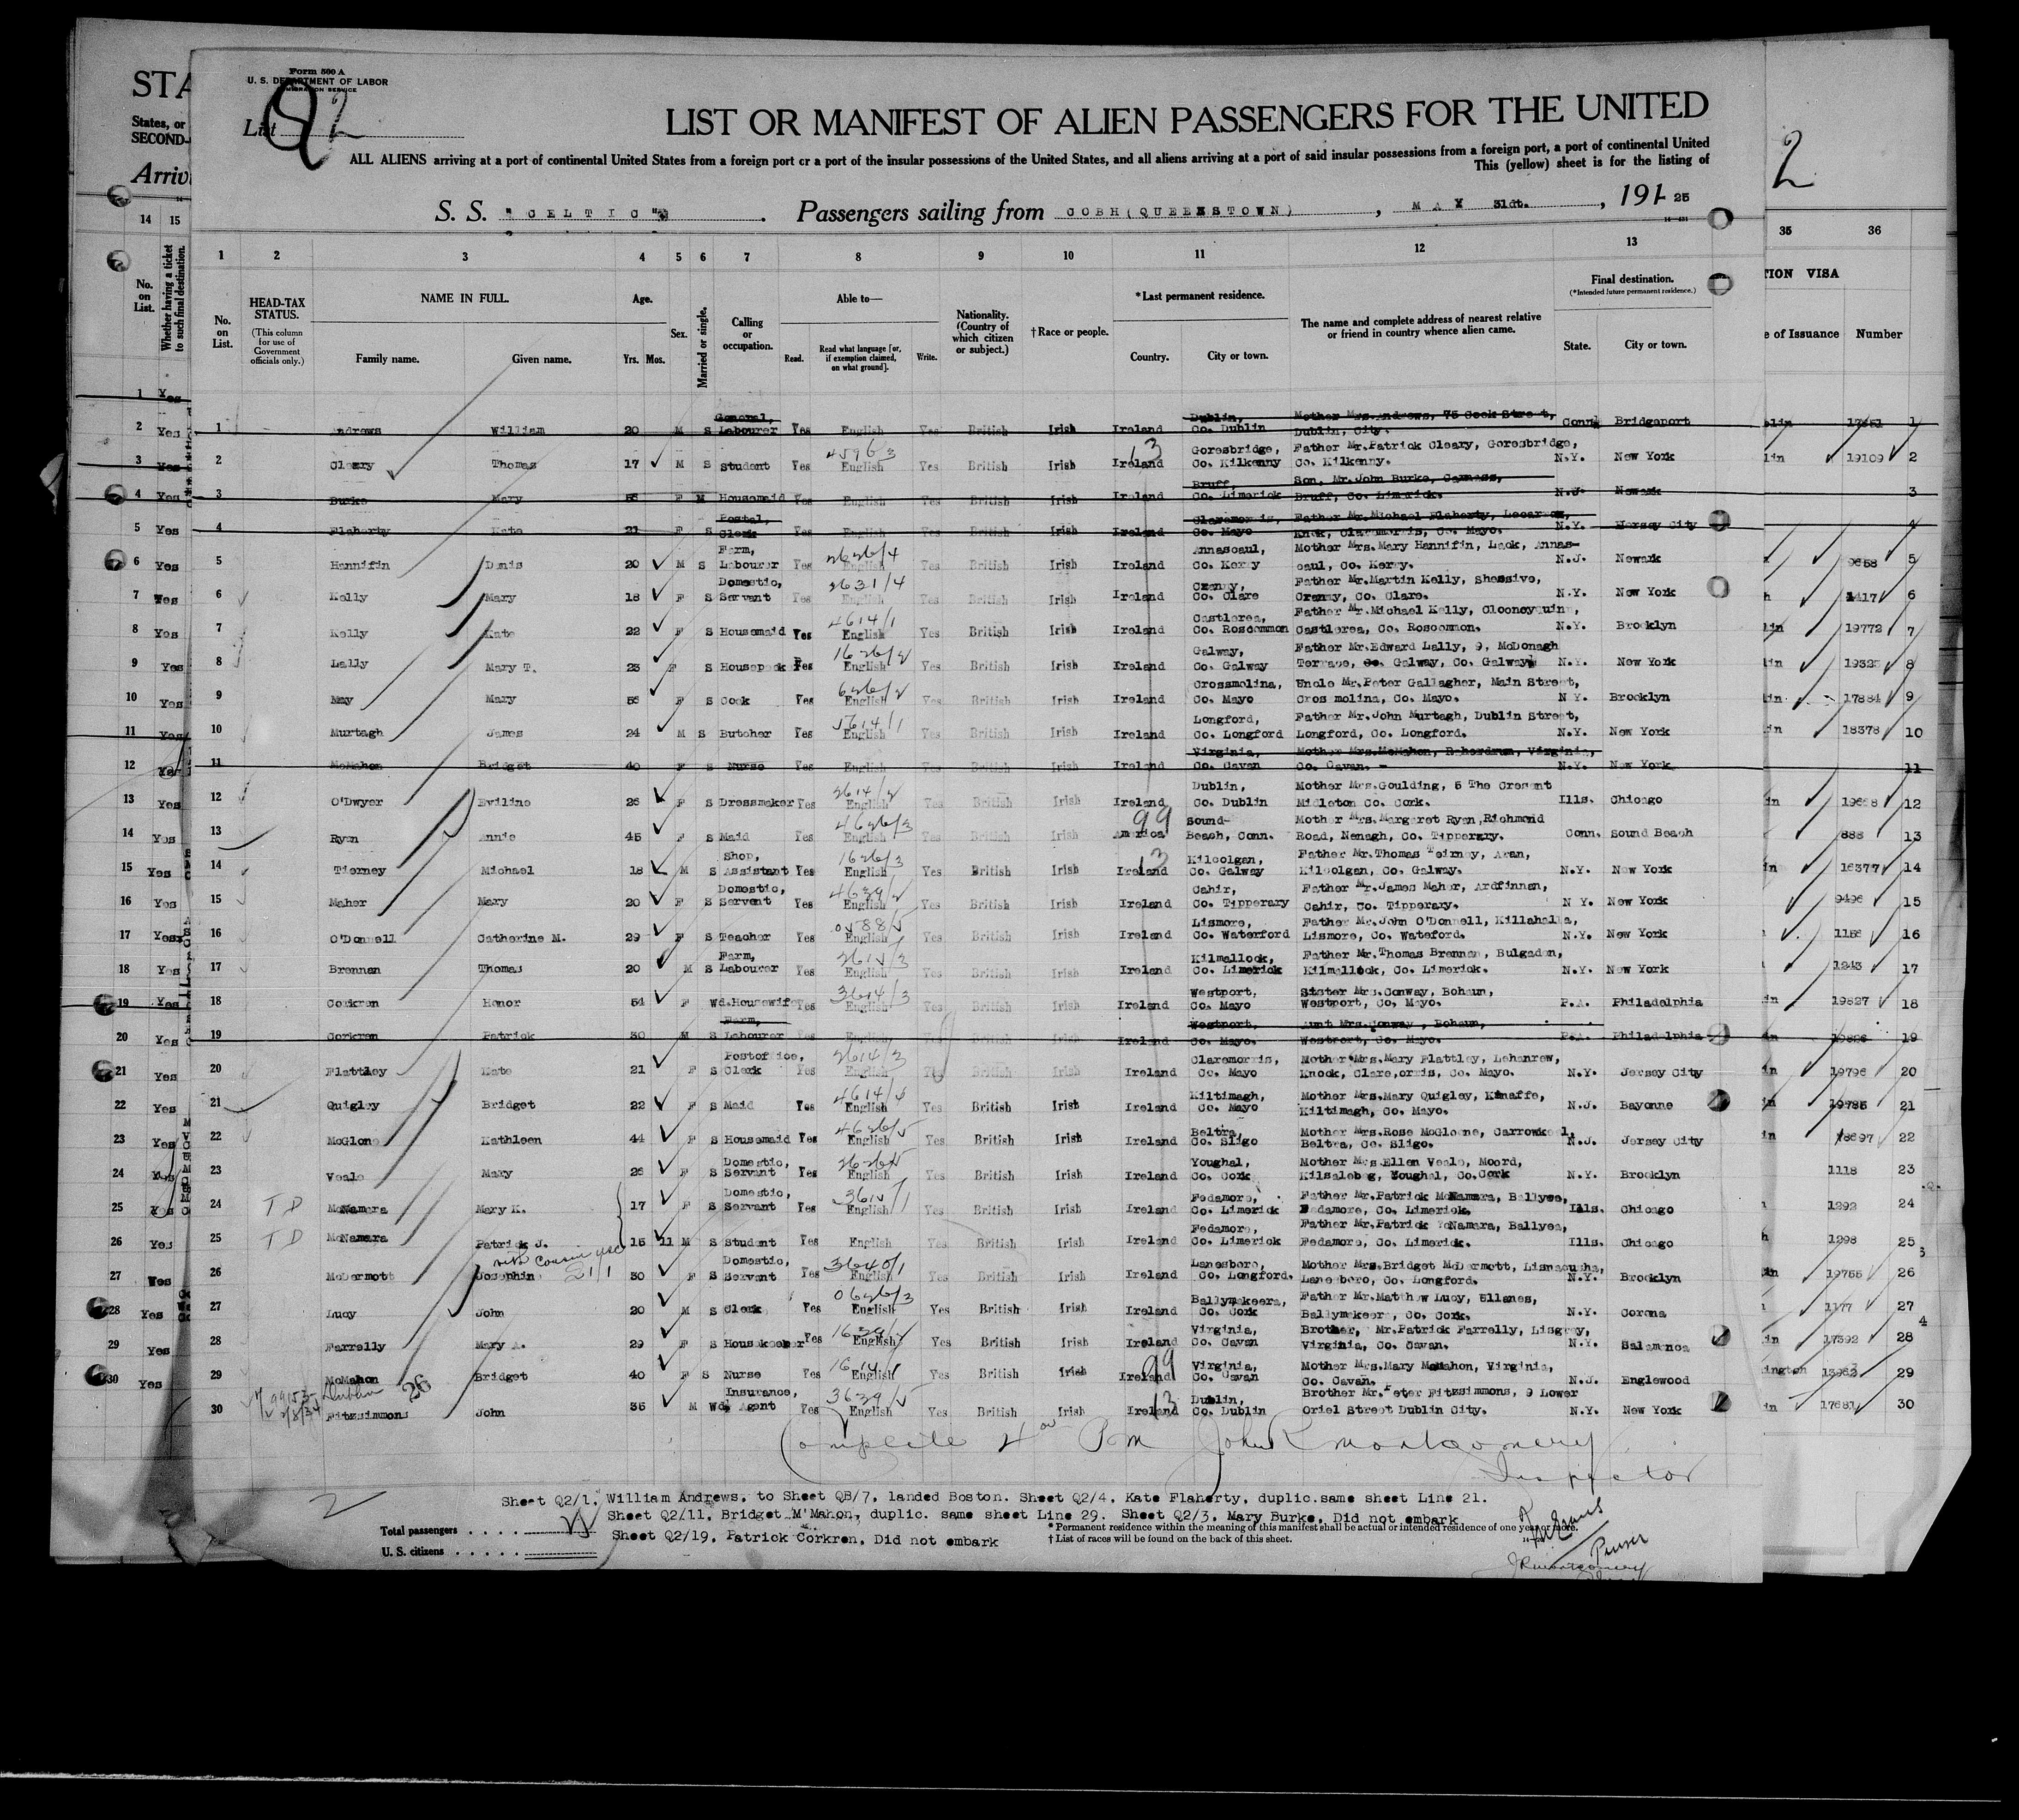 Form 500 A
U. S. DEPARTMENT OF LABOR
IMMIGRATION SERVICE
List Q2
LIST OR MANIFEST OF ALIEN PASSENGERS FOR THE UNITED
ALL ALIENS arriving at a port of continental United States from a foreign port or a port of the insular possessions of the United States, and all aliens arriving at a port of said insular possessions from a foreign port, a port of continental United
This (yellow) sheet is for the listing of
S. S. "CELTIC" . Passengers sailing from COBH(QUEENSTOWN) , MAY 31dt. , 191- 25
1 2 3 4 5 6 7 8 9 10 11 12 13
No. on List. HEAD-TAX STATUS. (This column for use of Government officials only.) NAME IN FULL. Family name. Given name. Age. Yrs. Mos. Sex. Married or single. Calling or occupation. Able to— Read. Read what language [or, if exemption claimed, on what ground]. Write. Nationality. (Country of which citizen or subject.) †Race or people. *Last permanent residence. Country. City or town. The name and complete address of nearest relative or friend in country whence alien came. Final destination. (*Intended future permanent residence.) State. City or town.
1 Andrews William 20 M S General, Labourer Yes English Yes British Irish Ireland Dublin, Co. Dublin Mother Mrs.Andrews, 75 Cook Street, Dublin, City. Conn. Bridgeport
2 Cleary Thomas 17 M S Student Yes English Yes British Irish Ireland Goresbridge, Co. Kilkenny Father Mr.Patrick Cleary, Goresbridge, Co. Kilkenny. N.Y. New York 19109 2
3 Burke Mary 55 F M Housemaid Yes English Yes British Irish Ireland Bruff, Co. Limerick Son, Mr.John Burke, Bruff, Co. Limerick. N.J. Newark 3
4 Flaherty Kate 21 F S Postal, Clerk Yes English Yes British Irish Ireland Claremorris, Co. Mayo Father Mr.Michael Flaherty, Knok, Claremorris, Co. Mayo. N.Y. Jersey City 4
5 Hannifin Denis 20 M S Farm, Labourer Yes English Yes British Irish Ireland Annascaul, Co. Kerry Mother Mrs.Mary Hannifin, Lack, Annascaul, Co. Kerry. N.J. Newark 9658 5
6 Kelly Mary 18 F S Domestic, Servant Yes English Yes British Irish Ireland Cranny, Co. Clare Father Mr.Martin Kelly, Shessive, Cranny, Co. Clare. N.Y. New York 1417 6
7 Kelly Kate 22 F S Housemaid Yes English Yes British Irish Ireland Castlerea, Co. Roscommon Father Mr.Michael Kelly, Clooneyquinn, Castlerea, Co. Roscommon. N.Y. Brooklyn 19772 7
8 Lally Mary T. 23 F S Yes English Yes British Irish Ireland Galway, Co. Galway Father Mr.Edward Lally, 9, McDonagh Terrace, Galway, Co. Galway N.Y. New York 8
9 May Mary 55 F S Cook Yes English Yes British Irish Ireland Crossmolina, Co. Mayo Uncle Mr.Peter Gallagher, Main Street, Cros molina, Co. Mayo. N Y. Brooklyn 17884 9
10 Murtagh James 24 M S Butcher Yes English Yes British Irish Ireland Longford, Co. Longford Father Mr.John Murtagh, Dublin Street, Longford, Co. Longford. N.Y. New York 18378 10
11 McMahon Bridget 40 F S Nurse Yes English Yes British Irish Ireland Virginia, Co. Cavan Mother Mrs.McMahon, Virginia, Co. Cavan. N.Y. New York 11
12 O'Dwyer Eviline 26 F S Dressmaker Yes English Yes British Irish Ireland Dublin, Co. Dublin Mother Mrs.Goulding, 5 The Cresent Midleton Co. Cork. Ills. Chicago 12
13 Ryan Annie 45 F S Maid Yes English Yes British Irish America Sound- Beach, Conn. Mother Mrs.Margaret Ryan,Richmond Road, Nenagh, Co. Tipperary. Conn. Sound Beach 888 13
14 Tierney Michael 18 M S Shop, Assistant Yes English Yes British Irish Ireland Kilcolgan, Co. Galway Father Mr.Thomas Teirney, Aran, Kilcolgan, Co. Galway. N.Y. New York 16377 14
15 Maher Mary 20 F S Domestic, Servant Yes English Yes British Irish Ireland Cahir, Co. Tipperary Father Mr.James Maher, Ardfinnan, Cahir, Co. Tipperary. N Y. New York 9496 15
16 O'Donnell Catherine M. 29 F S Teacher Yes English Yes British Irish Ireland Lismore, Co. Waterford Father Mr.John O'Donnell, Killahalla, Lismore, Co. Wateford. N.Y. New York 1156 16
17 Brennan Thomas 20 M S Farm, Labourer Yes English Yes British Irish Ireland Kilmallock, Co. Limerick Father Mr.Thomas Brennan, Bulgaden, Kilmallock, Co. Limerick. N.Y. New York 1243 17
18 Corkren Honor 54 F Wd. Housewife Yes English Yes British Irish Ireland Westport, Co. Mayo Sister Mrs.Conway, Bohaun, Westport, Co. Mayo. P.A. Philadelphia 19827 18
19 Corkren Patrick 30 M S Farm, Labourer Yes English Yes British Irish Ireland Westport, Co. Mayo. Aunt Mrs.Conway, Bohaun, Westport, Co. Mayo. P.A. Philadelphia 19826 19
20 Flattley Kate 21 F S Postoffice, Clerk Yes English Yes British Irish Ireland Claremorris, Co. Mayo Mother Mrs.Mary Flattley, Lehanrew, Knock, Clare,orris, Co. Mayo. N.Y. Jersey City 19796 20
21 Quigley Bridget 22 F S Maid Yes English Yes British Irish Ireland Kiltimagh, Co. Mayo Mother Mrs.Mary Quigley, Kinaffe, Kiltimagh, Co. Mayo. N.J. Bayonne 19785 21
22 McGlone Kathleen 44 F S Housemaid Yes English Yes British Irish Ireland Beltra, Co. Sligo Mother Mrs.Rose McGloene, Carrowkeel, Beltra, Co. Sligo. N.J. Jersey City 18697 22
23 Veale Mary 26 F S Domestic, Servant Yes English Yes British Irish Ireland Youghal, Co. Cork Mother Mrs.Ellen Veale, Moord, Youghal, Co.Cork N.Y. Brooklyn 1118 23
24 T D McNamara Mary K. 17 F S Domestic, Servant Yes English Yes British Irish Ireland Fedamore, Co. Limerick Father Mr.Patrick McNamara, Ballyea, Fedamore, Co. Limerick. Ills. Chicago 1292 24
25 T D McNamara Patrick J. 15 11 M S Student Yes English Yes British Irish Ireland Fedamore, Co. Limerick Father Mr.Patrick McNamara, Ballyea, Fedamore, Co. Limerick. Ills. Chicago 1298 25
with cousin
26 McDermott Josephine 30 F S Domestic, Servant Yes English Yes British Irish Ireland Lanesboro, Co. Longford. Mother Mrs.Bridget McDermott, Lanesboro, Co. Longford. N.Y. Brooklyn 19755 26
27 Lucy John 20 M S Clerk Yes English Yes British Irish Ireland Ballymakeera, Co. Cork Father Mr.Matthew Lucy, Ullanes, Ballymakeera, Co. Cork. N.Y. Corona 1177 27
28 Farrelly Mary A. 29 F S Housekeeker Yes English Yes British Irish Ireland Virginia, Co. Cavan Brother, Mr.Patrick Farrelly, Lisgrey, Virginia, Co. Cavan. N.Y. Salamanca 17392 28
29 McMahon Bridget 40 F S Nurse Yes English Yes British Irish Ireland Virginia, Co. Cavan Mother Mrs.Mary McMahon, Virginia, Co. Cavan. N.J. Englewood 29
30 Fitzsimmons John 35 M Wd. Insurance, Agent Yes English Yes British Irish Ireland Dublin, Co. Dublin Brother Mr.Peter Fitzsimmons, 9 Lower Oriel Street Dublin City. N.Y. New York 17681 30
Complete John R Montgomery
Inspector
Sheet Q2/1. William Andrews. to Sheet QB/7. landed Boston. Sheet Q2/4. Kate Flaherty. duplic.same sheet Line 21.
Sheet Q2/11. Bridget M'Mahon. duplic. same sheet Line 29. Sheet Q2/3. Mary Burke. Did not embark
Sheet Q2/19. Patrick Corkren. Did not embark
Total passengers
U. S. citizens
* Permanent residence within the meaning of this manifest shall be actual or intended residence of one year or more.
† List of races will be found on the back of this sheet.
Purser
JRMontgomery